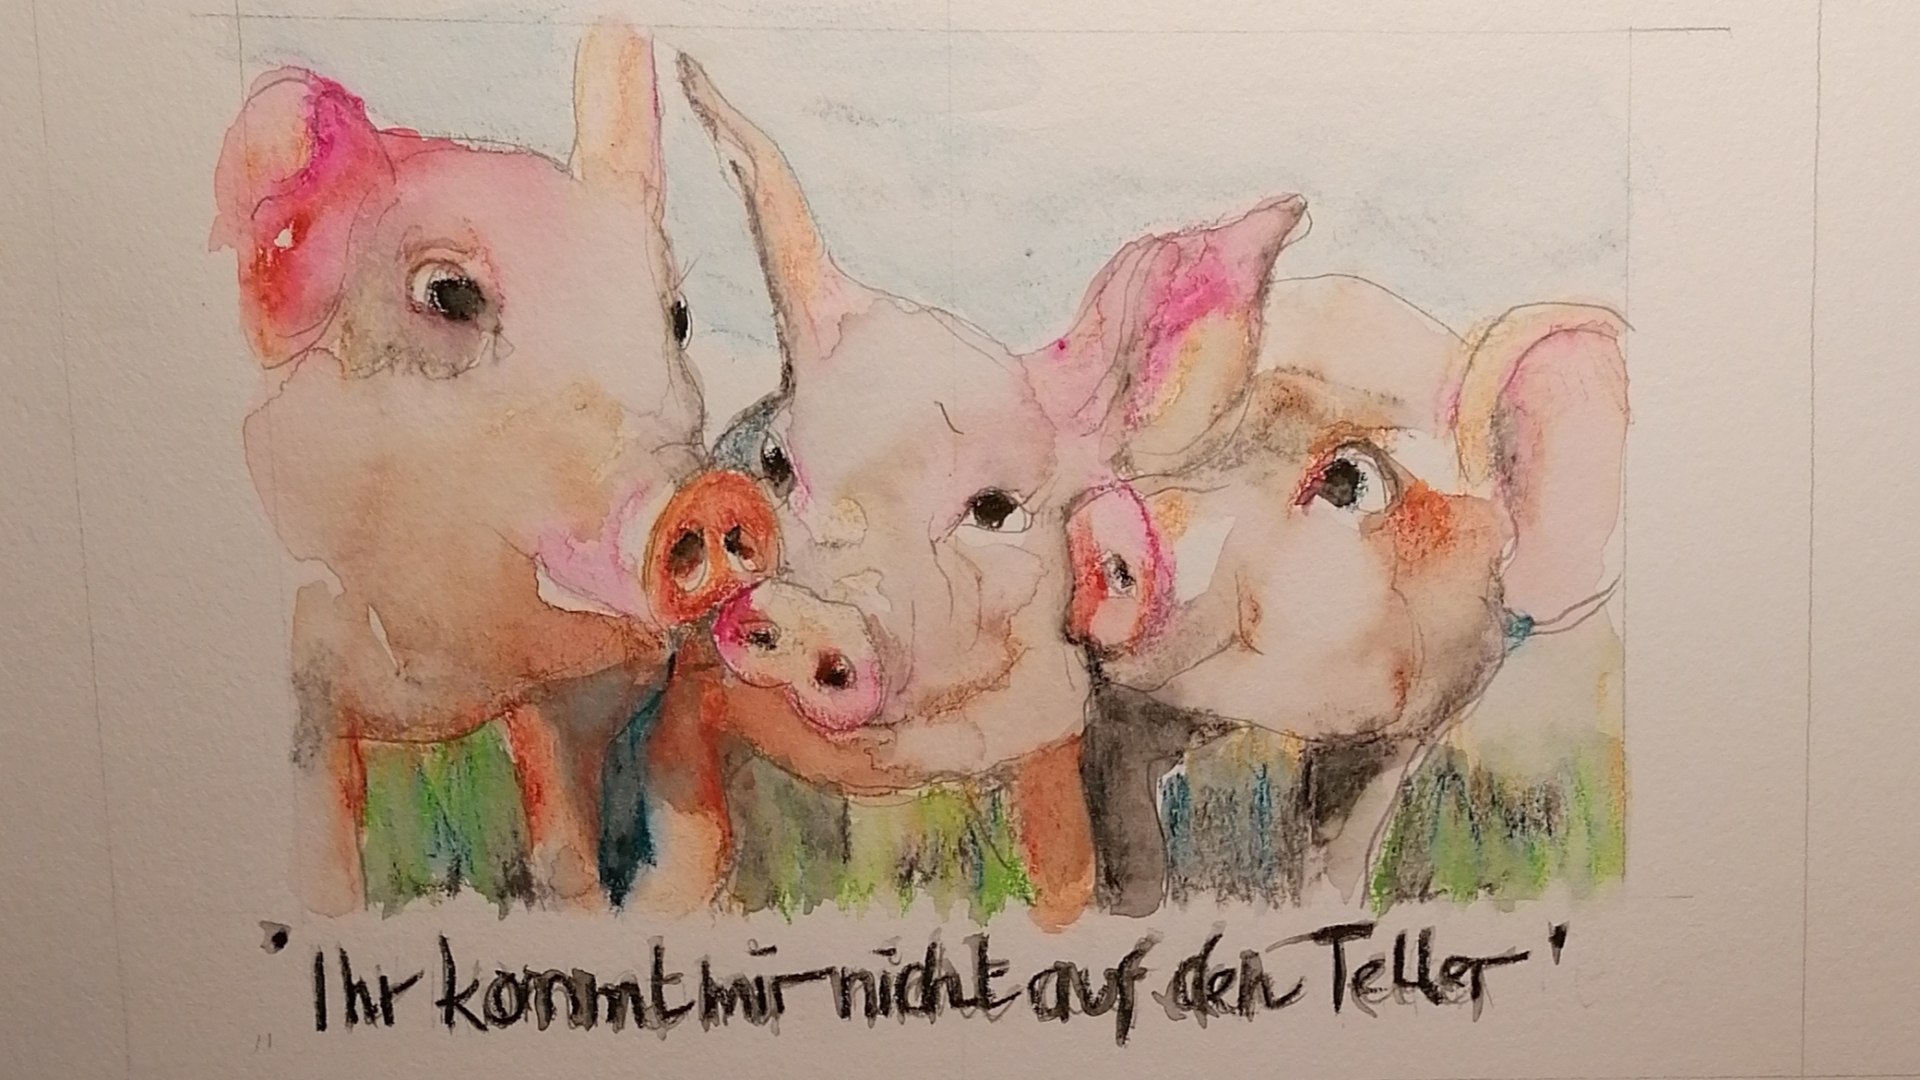 'Ihr kommt mir nicht auf den Teller'